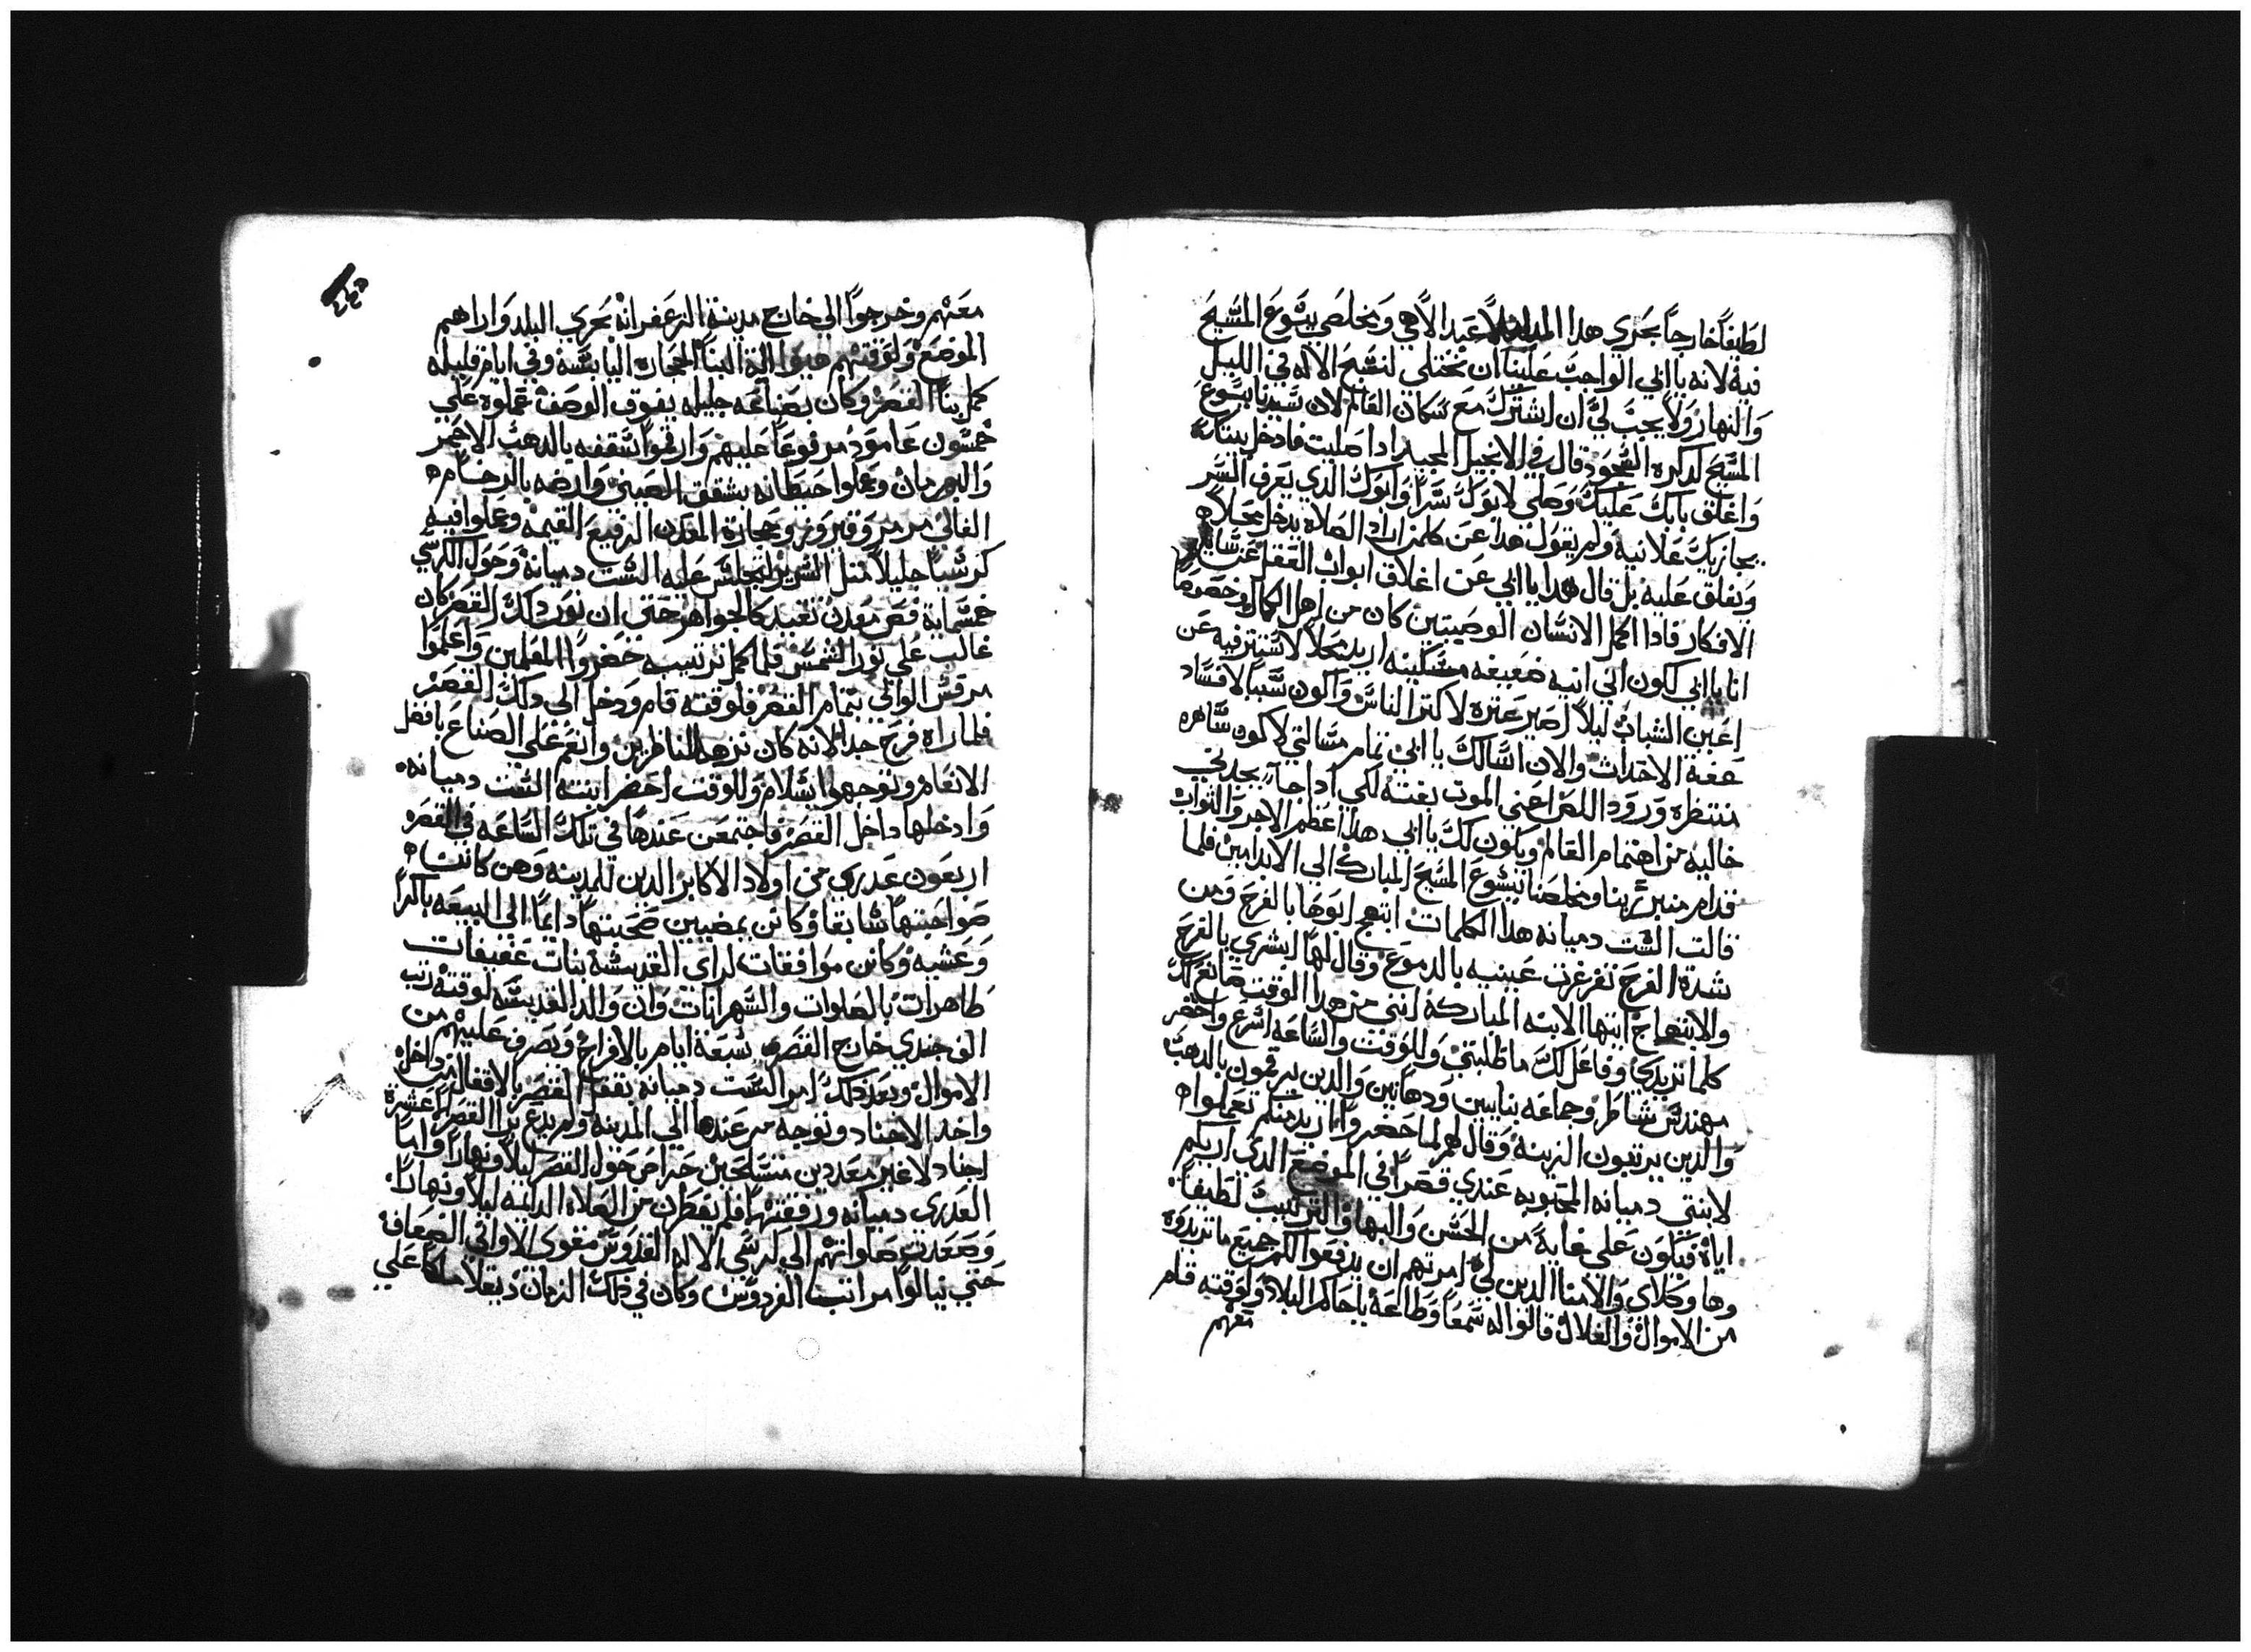 لطيفاً خارجاً بحري هذا البلد لاعبد الاهي ومخلصي يسوع المسيح
فيه لانه يا ابي الواجب علينا ان نختلي لنسبح الاله في الليل
والنهار ولا يجب لي ان اشترك مع سكان العالم لان سيدنا يسوع
المسيح لدكره السجود قال في الانجيل المجيد ادا صليت فادخل بيتك
واغلق بابك عليك وصلي لابوك سراً وابوك الذي يعرف السر
يجازيك علانية ولم يقول هذا عن كلمن اراد الصلاه يدخل محلاً
ويغلق عليه بل قال هدا يا ابي عن اغلاق ابواب العقل عن ساير
الافكار فادا اكمل الانسان الوصيتين كان من اهل الكمال وخصوصا
انا يا ابي لكون اني انيه ضعيفه مسكينه اريد محلاً لاستتر فيه عن
اعين الشباب ليلاً اصير عتره لاكتر الناس واكون سبباً لافساد
عفة الاحداث والان اسالك يا ابي تمام مسالتي لاكون ساهره
منتظره ورود اللص اعني الموت بغته لكي ادا جاء يجدني
خاليه من اهتمام العالم ويكون لك يا ابي هدا عظم الاجر والتواب
قدام منبر ربنا ومخلصنا يسوع المسيح المبارك الى الابد امين فلما
قالت الست دميانه هذا الكلمات ابتهج ابوها بالفرح ومن
شدة الفرح تغرغرت عينيه بالدموع وقال لها ابشري بالفرح
والابتهاج ايتها الابنه المباركة انني من هدا الوقت صانع لك
كلما تريدي وفاعل لك ما طلبتي وللوقت والساعه اسرع واحضر
مهندس شاطر وجماعه بنايين ودهانين والدين يرقمون بالدهب
والدين يرتبون الزينه وقال لهم لما حضروا اريد منكم تعملوا
لابنتي دميانه المحبوبه عندي قصراً في الموضع الدي اريكم
اياه فيكون على غاية من الحسن والبها والترتيب لطيفاً
وها وكلاي والامنا الدين لي امرتهم ان يدفعوا لكم جميع ما تريدوه
من الاموال والغلال قالوا له سمعاً وطاعة يا حاكم البلاد ولوقته قام
معهم
معهم وخرجوا الى خارج مدينة الزعفرانه بحري البلد واراهم
الموضع ولوقتهم هيوا الة البنا الحجاره اليابسه وفي ايام قليله
كمل بنا القصر وكان بصناعه جليله يفوق الوصف عملوه على
خمسون عامود مرفوعاً عليهم وارقموا سقفه بالدهب الاحمر
والبهرمان وعملوا حيطانه بشقق الصيني وارضه بالرخام
الغالي مرمر وفيروز وحجارة المعدن الرفيع القيمه وعملوا فيه
كرسياً جليلاً متل السرير لتجلس عليه الست دميانه وحول الكرسي
خمسماية فص معدن تقيد كالجواهر حتى ان نور دلك القصر كان
غالب على نور الشمس فلما كمل ترتيبه حضروا المعلمين واعلموا
مرقس الوالي بتمام القصر فلوقته قام ودخل الى دلك القصر
فلما راه فرح جدا لانه كان نزهه للناظرين وانعم على الصناع بافضل
الانعام وتوجهوا بسلام وللوقت احضر ابنته الست دميانه
وادخلها داخل القصر فاجتمعن عندها في تلك الساعه في القصر
اربعون عدرى من اولاد الاكابر الدين للمدينه وهن كانت
صواحبتها سابقا وكانن يمضيين صحبتها دايماً الى البيعه باكراً
وعشيه وكانن موافقات لراي القديسة بنات عفيفات
طاهرات بالصلوات والسهرانات وان والد القديسه لوقته رتب
الف جندي خارج القصر تسعة ايام بالافراح ويصرف عليهم من
الاموال وبعد ذلك امر الست دميانه بقفل القصر بالاقفال من داخل
واخد الاجناد وتوجه من عندها الى المدينه ولم يدع برا القصر الا عشرة
اجناد لا غير معددين متسلحين حراص حول القصر ليلاً ونهاراً واما
العدرى دميانه ورفقتها فلم يفطرن من الصلاه الدايمه ليلاً ونهاراً
وصعدت صلواتهم الى كرسي الاله القدوس مقوي الاواني الضعافة
حتى ينالوا مراتب الفردوس وكان في ذلك الزمان دقلديانوس ملكاً على